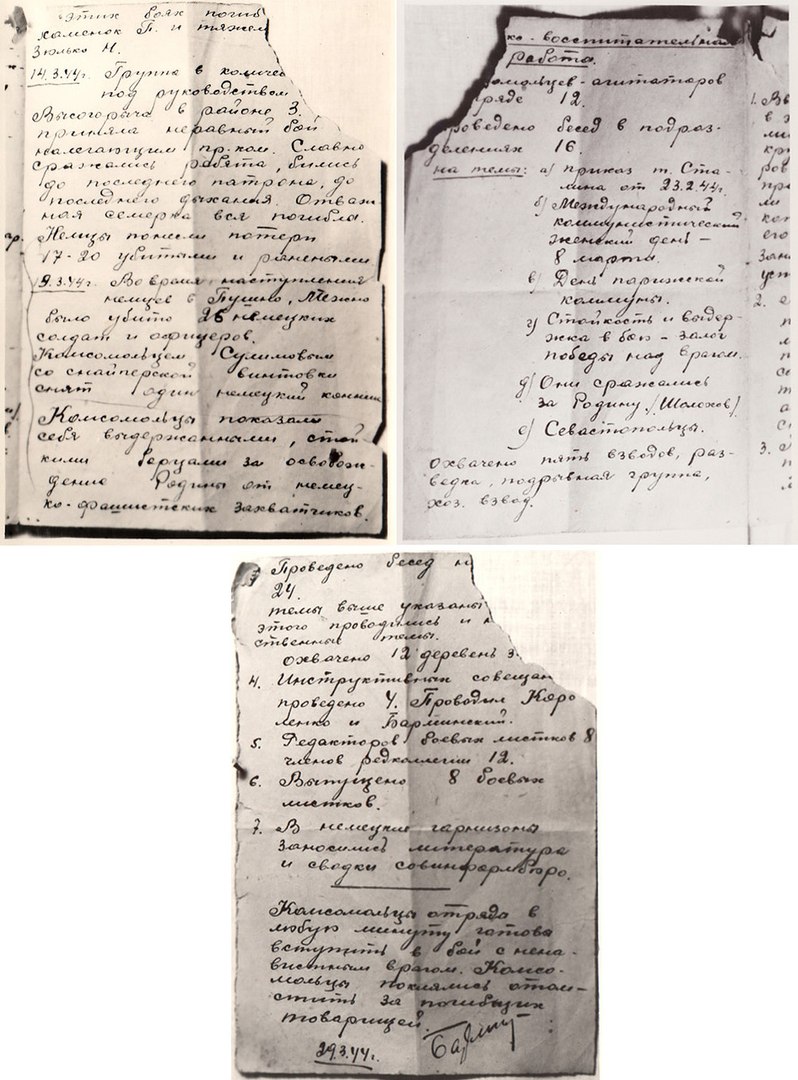 этих боях погиб
каменок П. и тяжел
Зюлько Н.
14.3.44г. Группа в количе
под руководством
Высогорыча в районе З.
приняла неравный бой
налегающим пр-ком. Славно
сражались ребята, бились
до последнего патрона, до
последнего дыхания. Отваж-
ная семерка вся погибла.
Немцы понесли потери
17-20 убитыми и ранеными
19.3.44г. Во время наступления
немцев в Пушно, Межно
было убито 26 немецких
солдат и офицеров.
Комсомольцем Сулимовым
со снайперской винтовки
снят один немецкий конник
Комсомольцы показали
себя выдержанными, стой
кими борцами за освобож-
дение Родины от немец-
ко-фашистских захватчиков.
ко-воспитательная
работа.
омольцев-агитаторов
ряде 12.
роведено бесед в подраз-
делениях 16.
на темы: а) приказ т. Ста-
лина от 23.2.44г.
б) Международный
коммунистический
женский день –
8 марта.
в) День парижской
коммуны.
г) Стойкость и выдер-
жка в бою – залог
победы над врагом.
д) Они сражались
за Родину /Шолохов/
е) Севастопольцы.
Охвачено пять взводов, раз-
ведка, подрывная группа,
хоз. взвод.
1. Вы
в з
2. е
3.
Проведено бесед н
24.
темы выше указаны
этого проводились и н
ственные темы.
охвачено 12 деревень з.
4. Инструктивных совещан
проведено 4. Проводил Коро
ленко и Барминский.
5. Редакторов боевых листков 8
членов редколлегии 12.
6. Выпущено 8 боевых
листков.
7. В немецкие гарнизоны
заносились литература
и сводки совинформбюро.
Комсомольцы отряда в
любую минуту готова
вступить в бой с нена-
вистным врагом. Комсо-
мольцы поклялись отом-
стить за погибших
товарищей.
29.3.44г. Барми